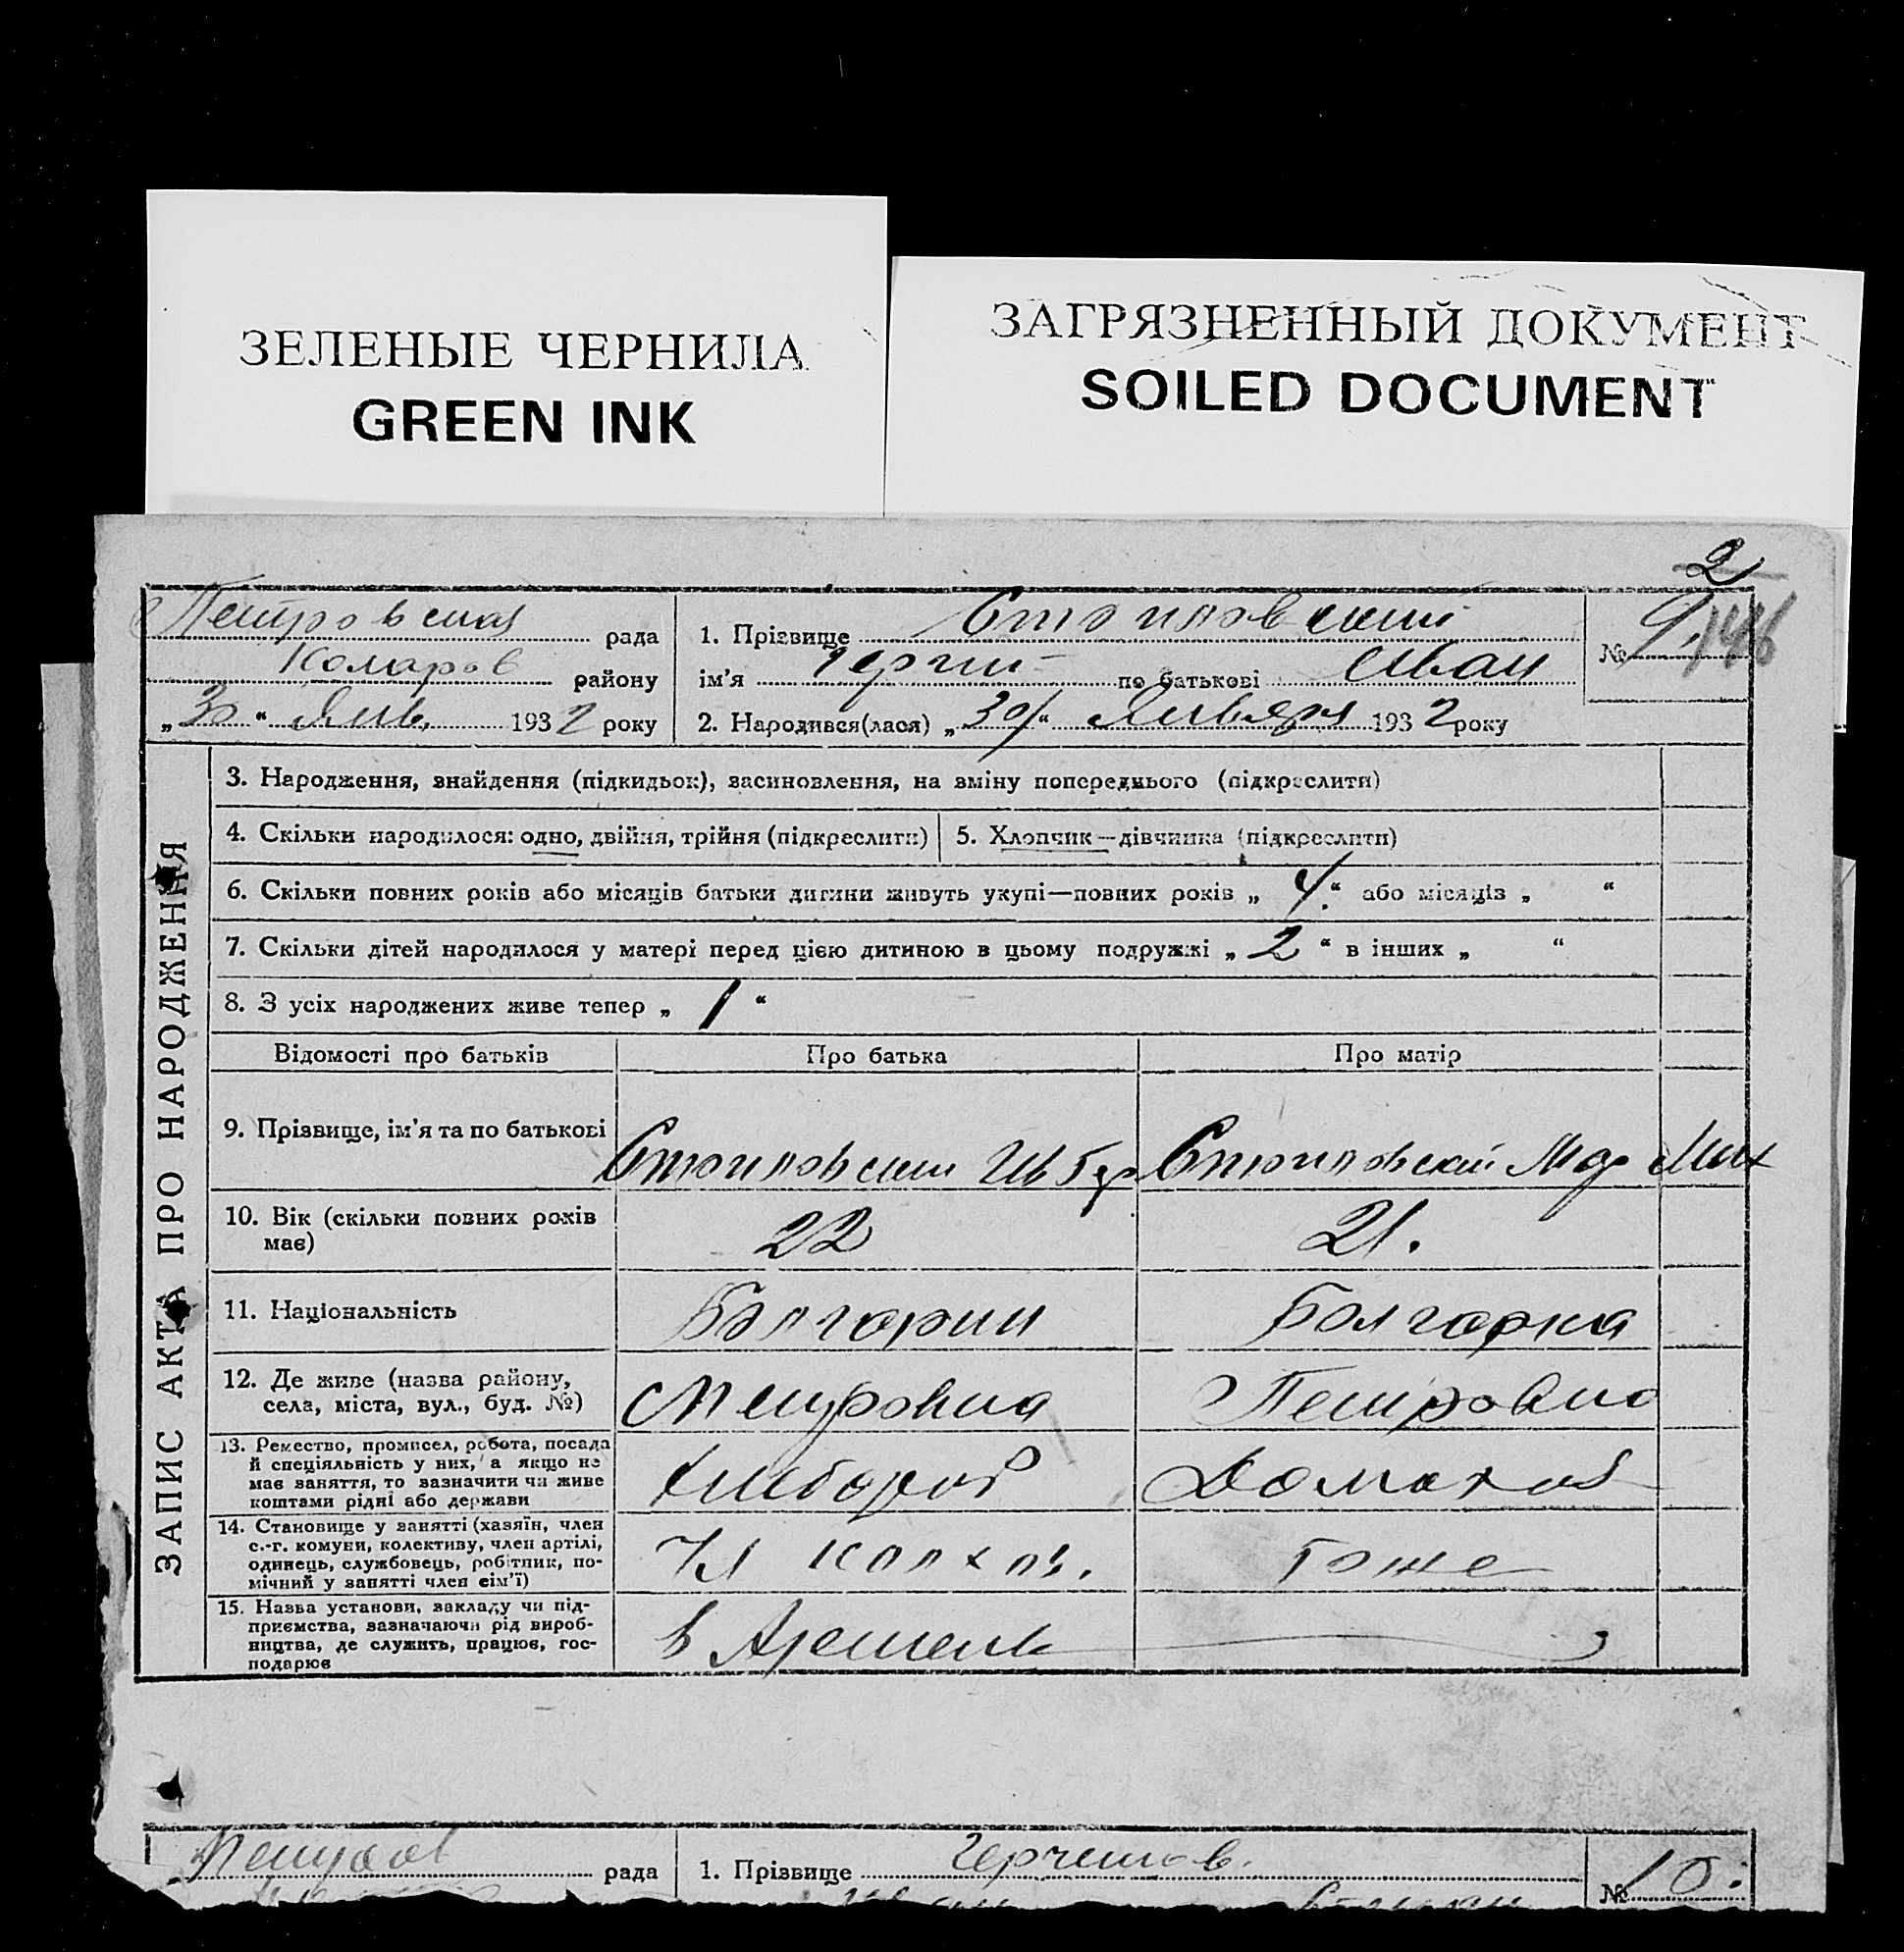 ЗЕЛЕНЫЕ ЧЕРНИЛА
GREEN INK
ЗАГРЯЗНЕННЫЙ ДОКУМЕНТ
SOILED DOCUMENT
2
Петровская рада
Коларов району
„30“ Янв. 1932 року
1. Прізвище Стоиловский
ім'я по батькові Иван
2. Народився(лася) „30“ Января 1932 року
№ 9. 146
ЗАПИС АКТА ПРО НАРОДЖЕННЯ
3. Народження, знайдення (підкидьок), засиновлення, на зміну попереднього (підкреслити)
4. Скільки народилося: одно, двійня, трійня (підкреслити)
5. Хлопчик—дівчинка (підкреслити)
6. Скільки повних років або місяців батьки дитини живуть укупі—повних років „4.“ або місяців „ “
7. Скільки дітей народилося у матері перед цією дитиною в цьому подружжі „2“ в інших „ “
8. З усіх народжених живе тепер „1“
Відомості про батьків Про батька Про матір
9. Прізвище, ім'я та по батькові Стоиловский Ив Стоиловский Мар Мих
10. Вік (скільки повних років має) 22 21.
11. Національність Болгарин Болгарка
12. Де живе (назва району,
села, міста, вул., буд. №) Петровка Петровка
13. Ремество, промисел, робота, посада
й спеціяльність у них, а якщо не
має заняття, то зазначити чи живе
коштами рідні або держави Хлебороб Домохоз
14. Становище у занятті (хазяїн, член
с.-г. комуни, колективу, член артілі,
одинець, службовець, робітник, по-
мічний у занятті член сім'ї) Чл колхоз. Тоже
15. Назва установи, закладу чи під-
приємства, зазначаючи рід вироб-
ництва, де служить, працює, гос-
подарює в Артели
рада
1. Прізвище
№ 10.